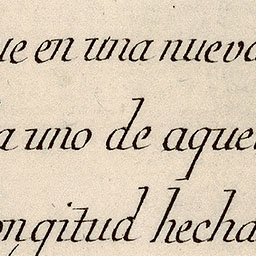 ue en una nueva
a uno de aquel
ongitud hecha